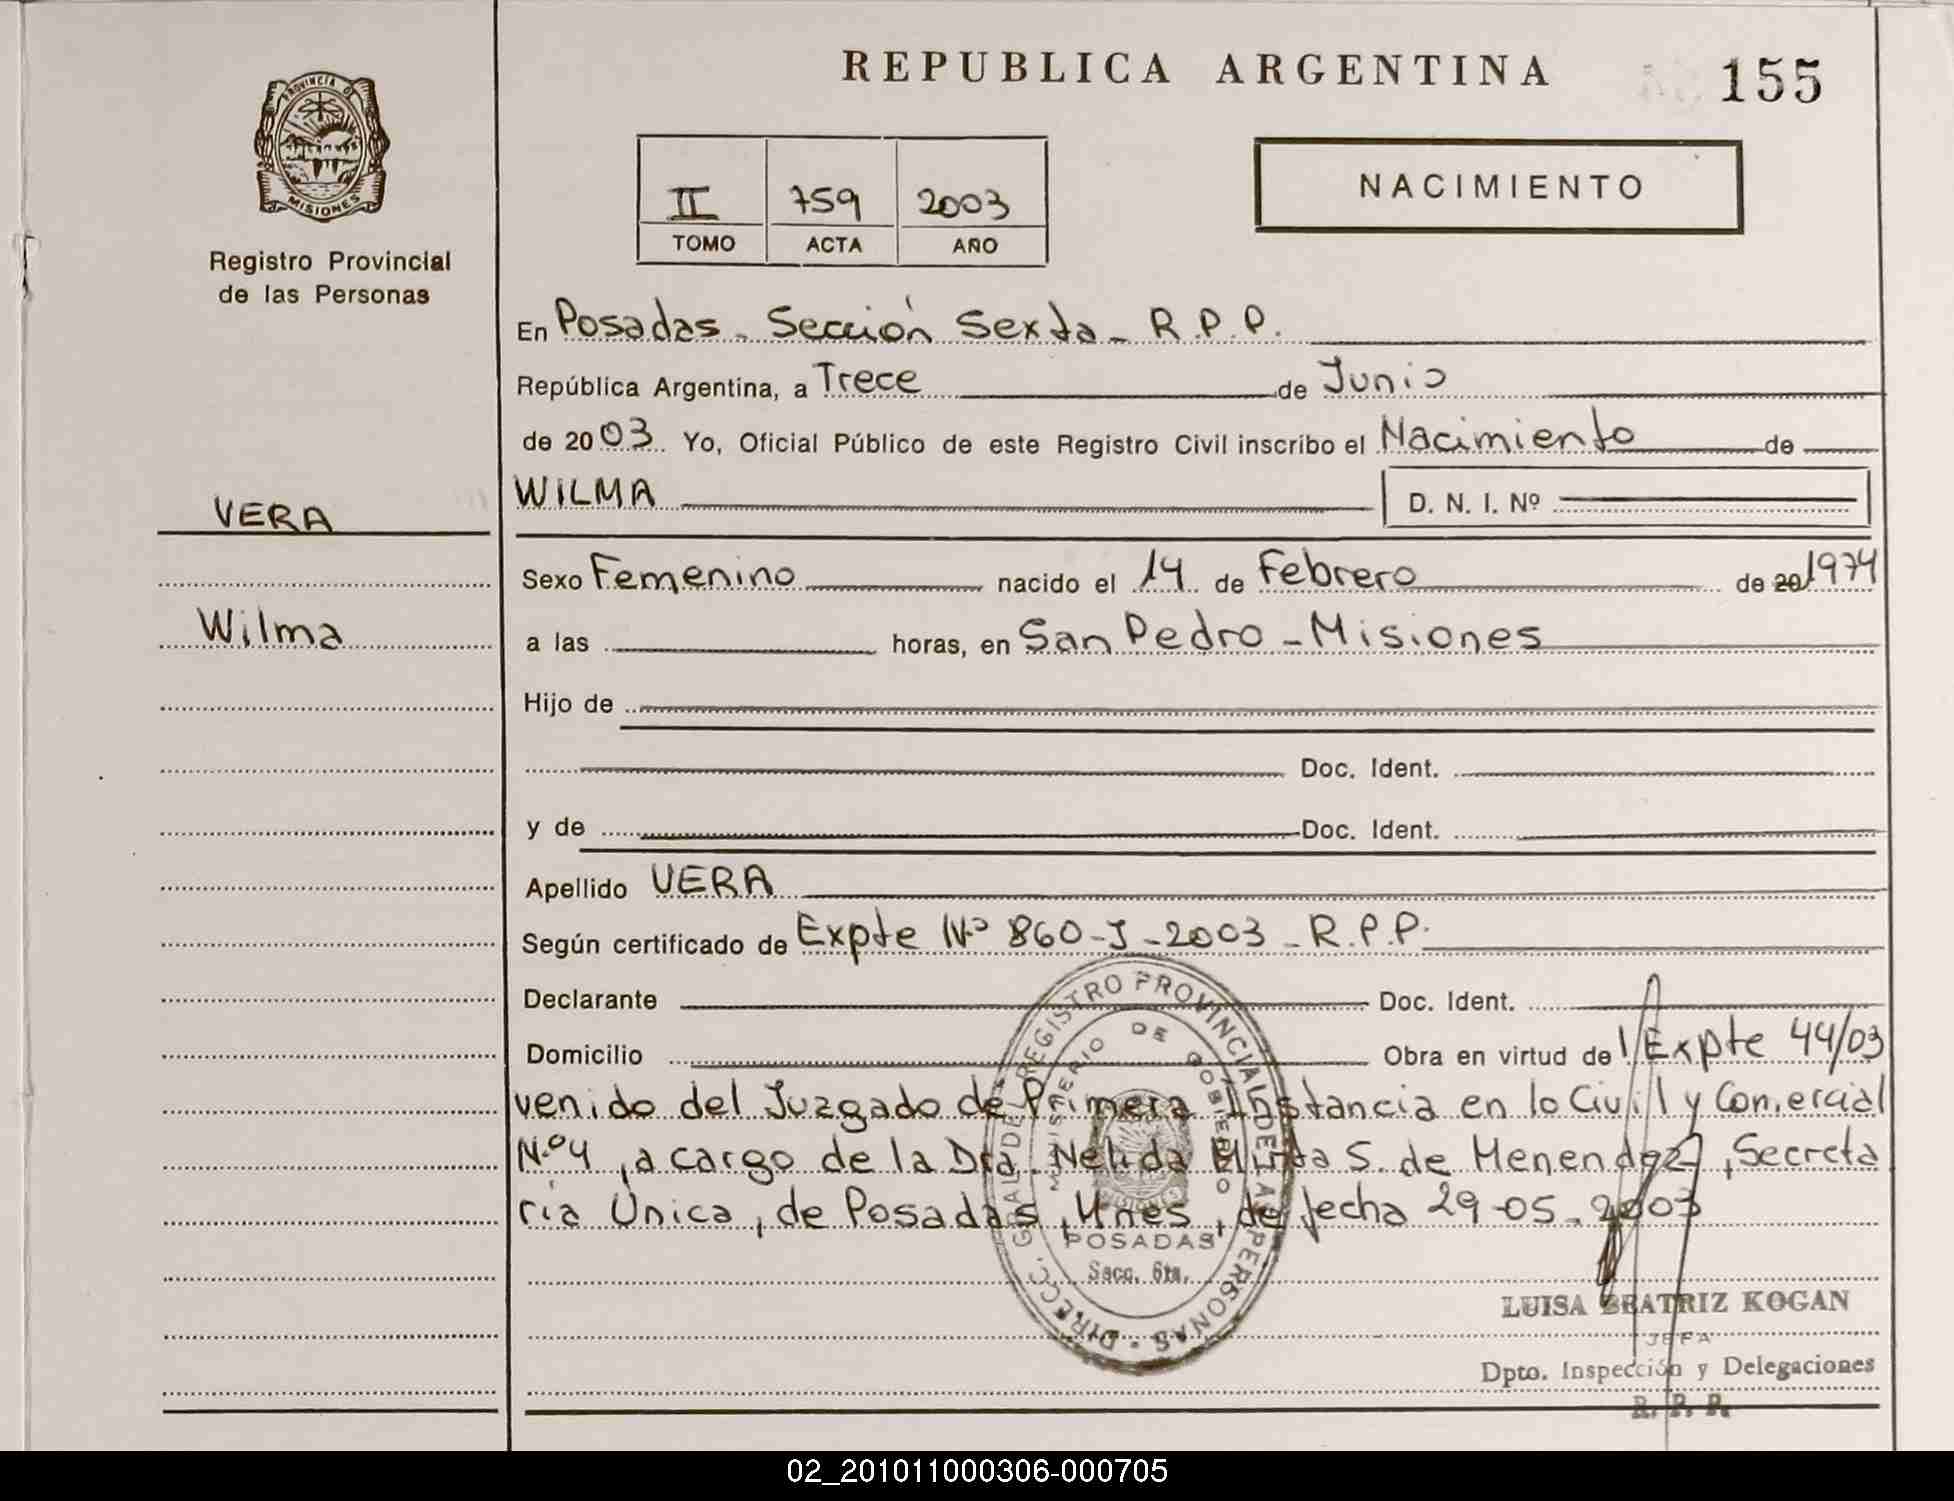 REPUBLICA ARGENTINA
155
PROVINCIA DE
MISIONES
Registro Provincial
de las Personas
II 759 2003
TOMO ACTA AÑO
NACIMIENTO
En Posadas - Sección Sexta - R.P.P.
República Argentina, a Trece de Junio
de 2003. Yo, Oficial Público de este Registro Civil inscribo el Nacimiento de
WILMA D. N. I. Nº
VERA
Sexo Femenino nacido el 14 de Febrero de 20 1974
Wilma
a las horas, en San Pedro - Misiones
Hijo de
Doc. Ident.
y de Doc. Ident.
Apellido VERA
Según certificado de Expte Nº 860-J-2003 - R.P.P.
Declarante Doc. Ident.
Domicilio Obra en virtud de Expte 44/03
venido del Juzgado de Primera Instancia en lo Civil y Comercial
Nº4, a cargo de la Dra. Nelida Mirta S. de Menendez, Secreta
ria Unica, de Posadas, Mnes, de fecha 29-05-2003
DIRECC. GRAL DE REGISTRO PROVINCIAL DE LAS PERSONAS
MINISTERIO DE GOBIERNO
POSADAS
Secc. 6ta.
LUISA BEATRIZ KOGAN
JEFA
Dpto. Inspección y Delegaciones
R. P. P.
02_201011000306-000705